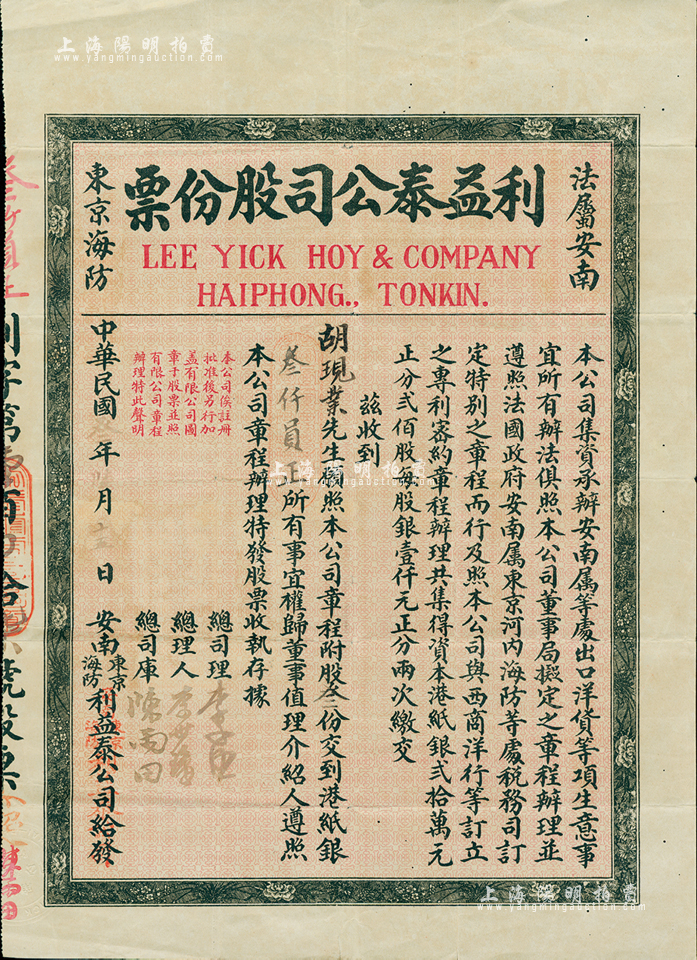 上海陽明拍賣
www.yangmingauction.com
利益泰公司股份票
法屬安南
東京海防
LEE YICK HOY & COMPANY
HAIPHONG., TONKIN.
本公司集資承辦安南属等處出口洋貨等項生意事
宜所有辦法俱照本公司董事局擬定之章程辦理並
遵照法國政府安南属東京河内海防等處税務司訂
定特别之章程而行及照本公司與西商洋行等訂立
之專利審約章程辦理共集得資本港紙銀弍拾萬元
正分弍佰股每股銀壹仟元正分兩次繳交
兹收到
胡現業先生關照本公司章程附股叁份交到港紙銀
叁仟員正所有事宜權歸董事值理介紹人遵照
本公司章程辦理特發股票收執存據
總司理
總理人
總司庫 陳雨田
本公司俟註册
批准後另行加
蓋有限公司圖
章于股票並照
有限公司章程
辦理特此聲明
中華民國 年 月 日
安南東京海防利益泰公司給發
叁仟員正
號股票
上海陽明拍賣
www.yangmingauction.com
上海陽明拍賣
www.yangmingauction.com